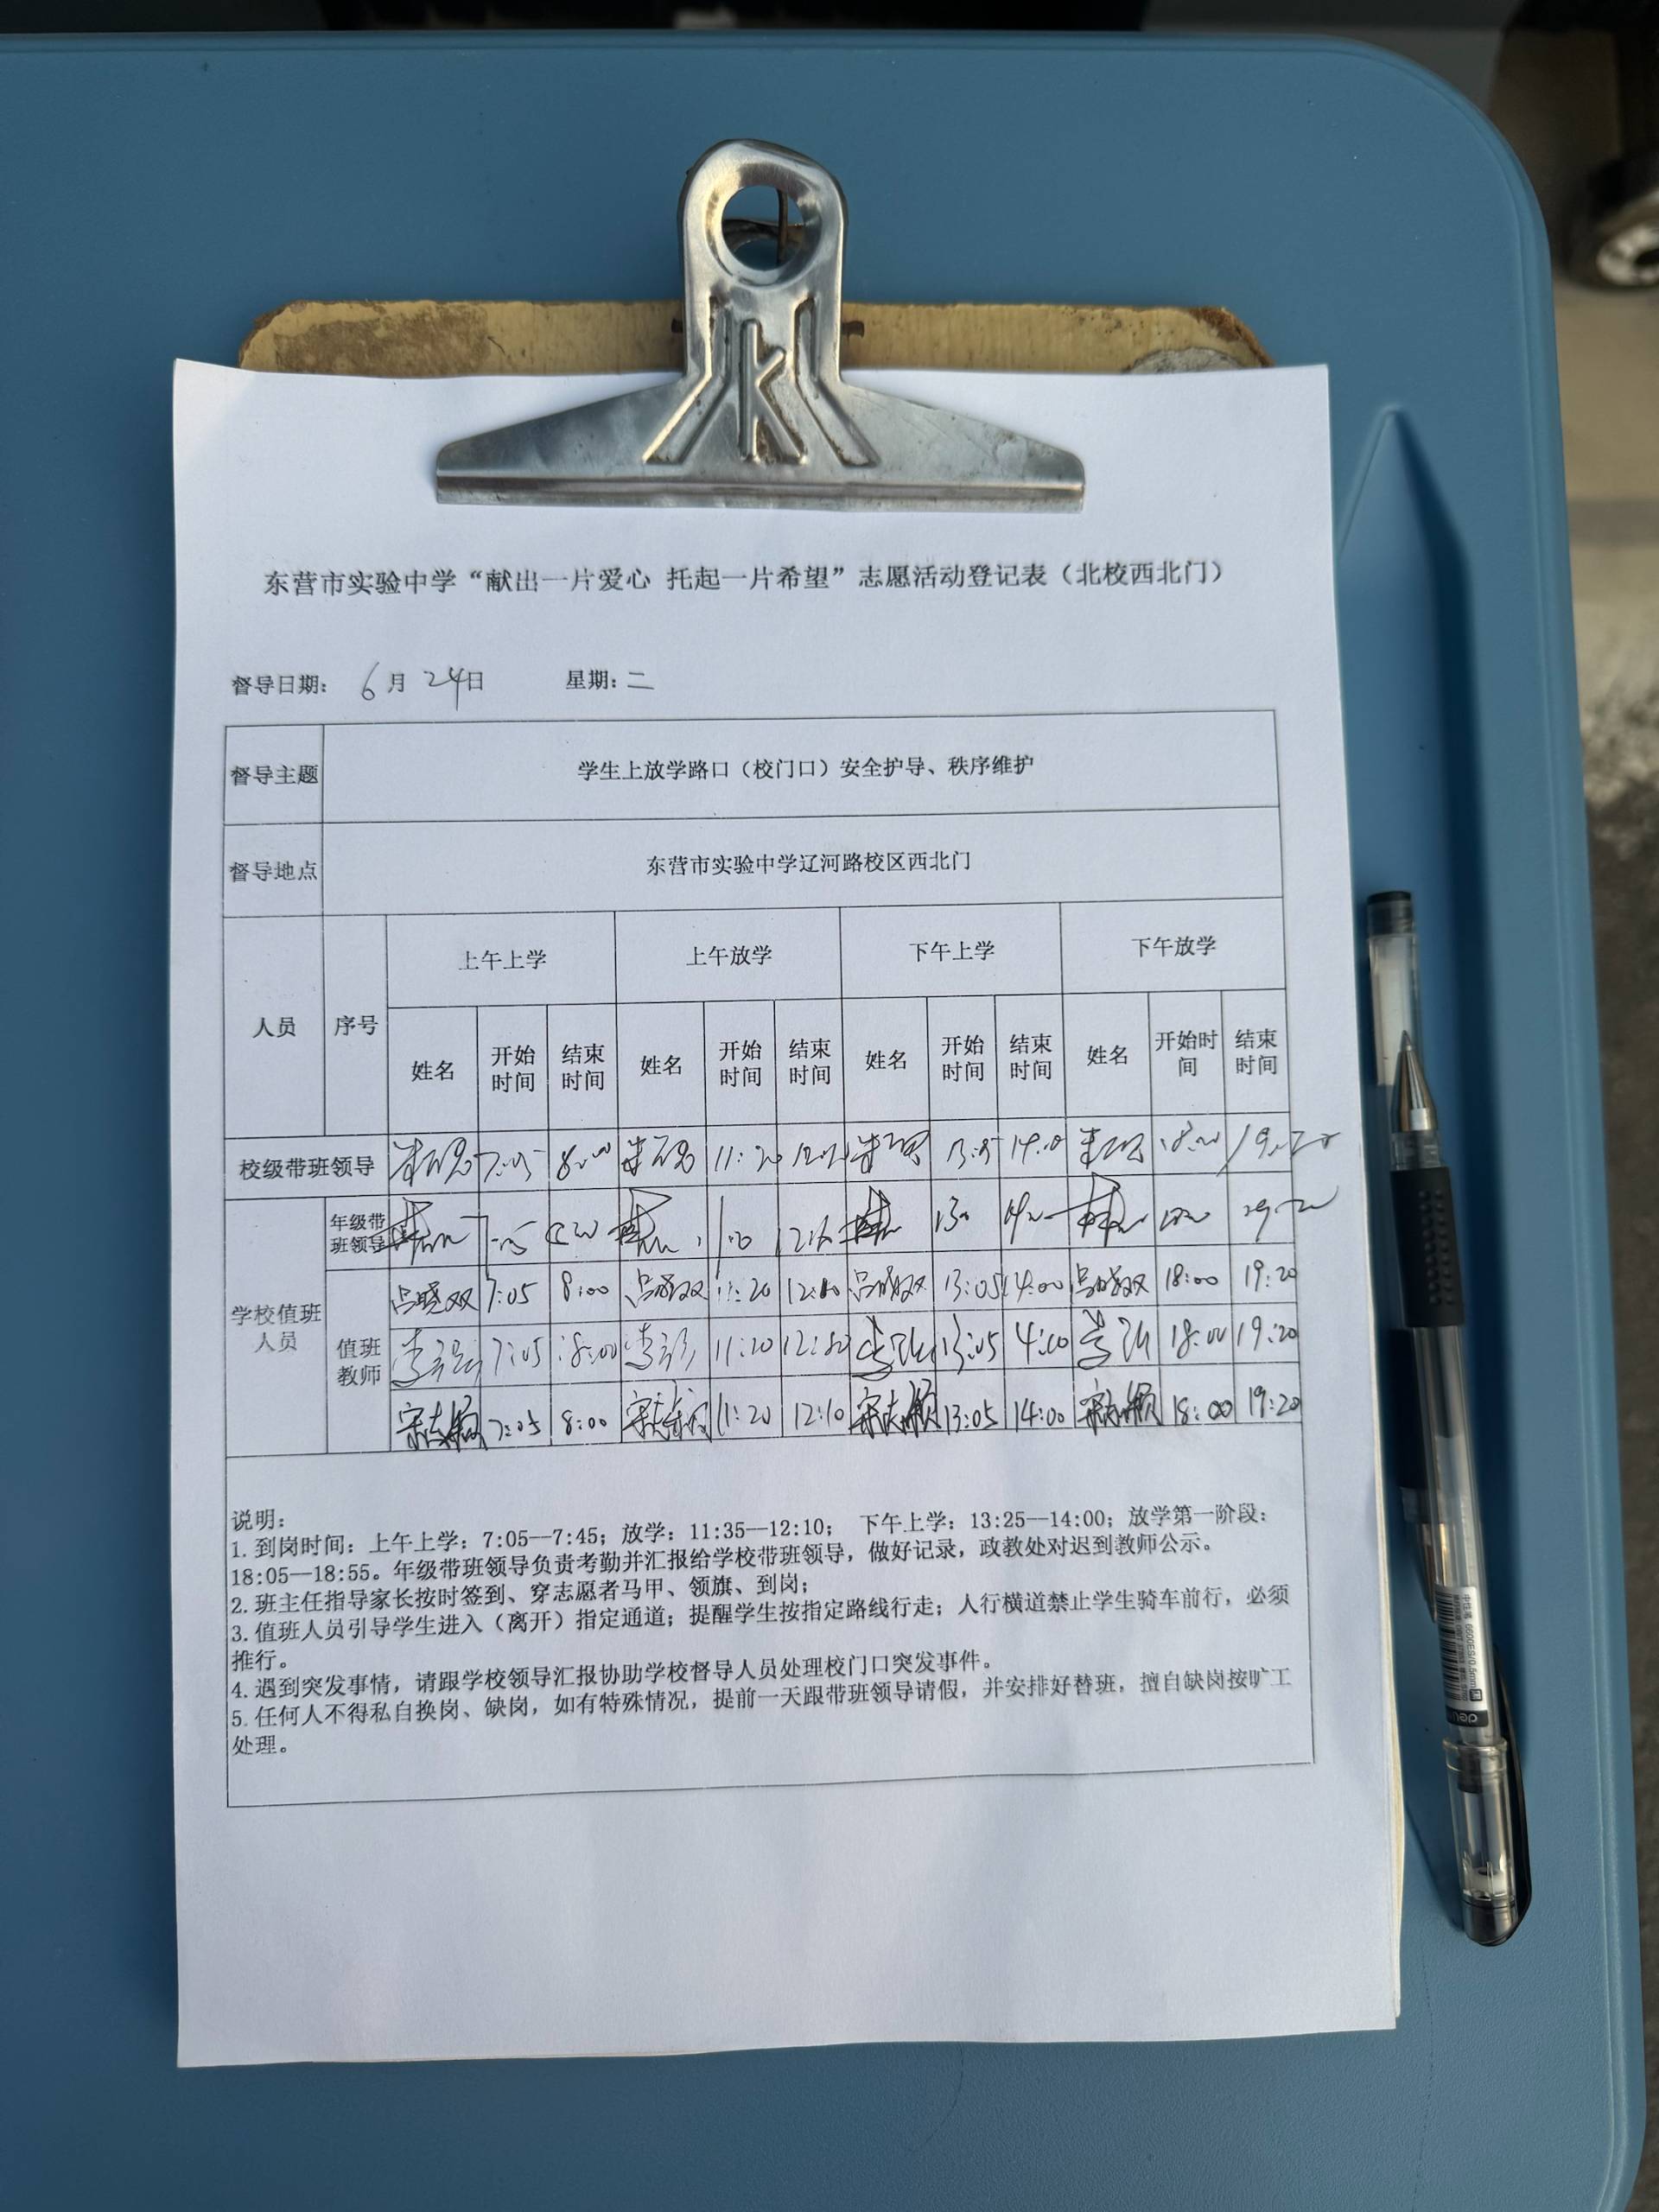 东营市实验中学“献出一片爱心 托起一片希望”志愿活动登记表（北校西北门）
督导日期： 6月24日 星期：二
督导主题 学生上放学路口（校门口）安全护导、秩序维护
督导地点 东营市实验中学辽河路校区西北门
人员 序号 上午上学 上午放学 下午上学 下午放学
姓名 开始时间 结束时间 姓名 开始时间 结束时间 姓名 开始时间 结束时间 姓名 开始时间 结束时间
校级带班领导 7:05 8:00 11:20 14:00 18:00 19:20
学校值班人员
年级带班领导 7:05
值班教师
吕晓双 7:05 8:00 吕晓双 11:20 12:10 吕晓双 13:05 14:00 吕晓双 18:00 19:20
7:05 8:00 11:20 13:05 18:00 19:20
7:05 8:00 11:20 12:10 13:05 14:00 18:00 19:20
说明：
1. 到岗时间：上午上学：7:05—7:45；放学：11:35—12:10； 下午上学：13:25—14:00；放学第一阶段：
18:05—18:55。年级带班领导负责考勤并汇报给学校带班领导，做好记录，政教处对迟到教师公示。
2. 班主任指导家长按时签到、穿志愿者马甲、领旗、到岗；
3. 值班人员引导学生进入（离开）指定通道；提醒学生按指定路线行走；人行横道禁止学生骑车前行，必须
推行。
4. 遇到突发事情，请跟学校领导汇报协助学校督导人员处理校门口突发事件。
5. 任何人不得私自换岗、缺岗，如有特殊情况，提前一天跟带班领导请假，并安排好替班，擅自缺岗按旷工
处理。
deli